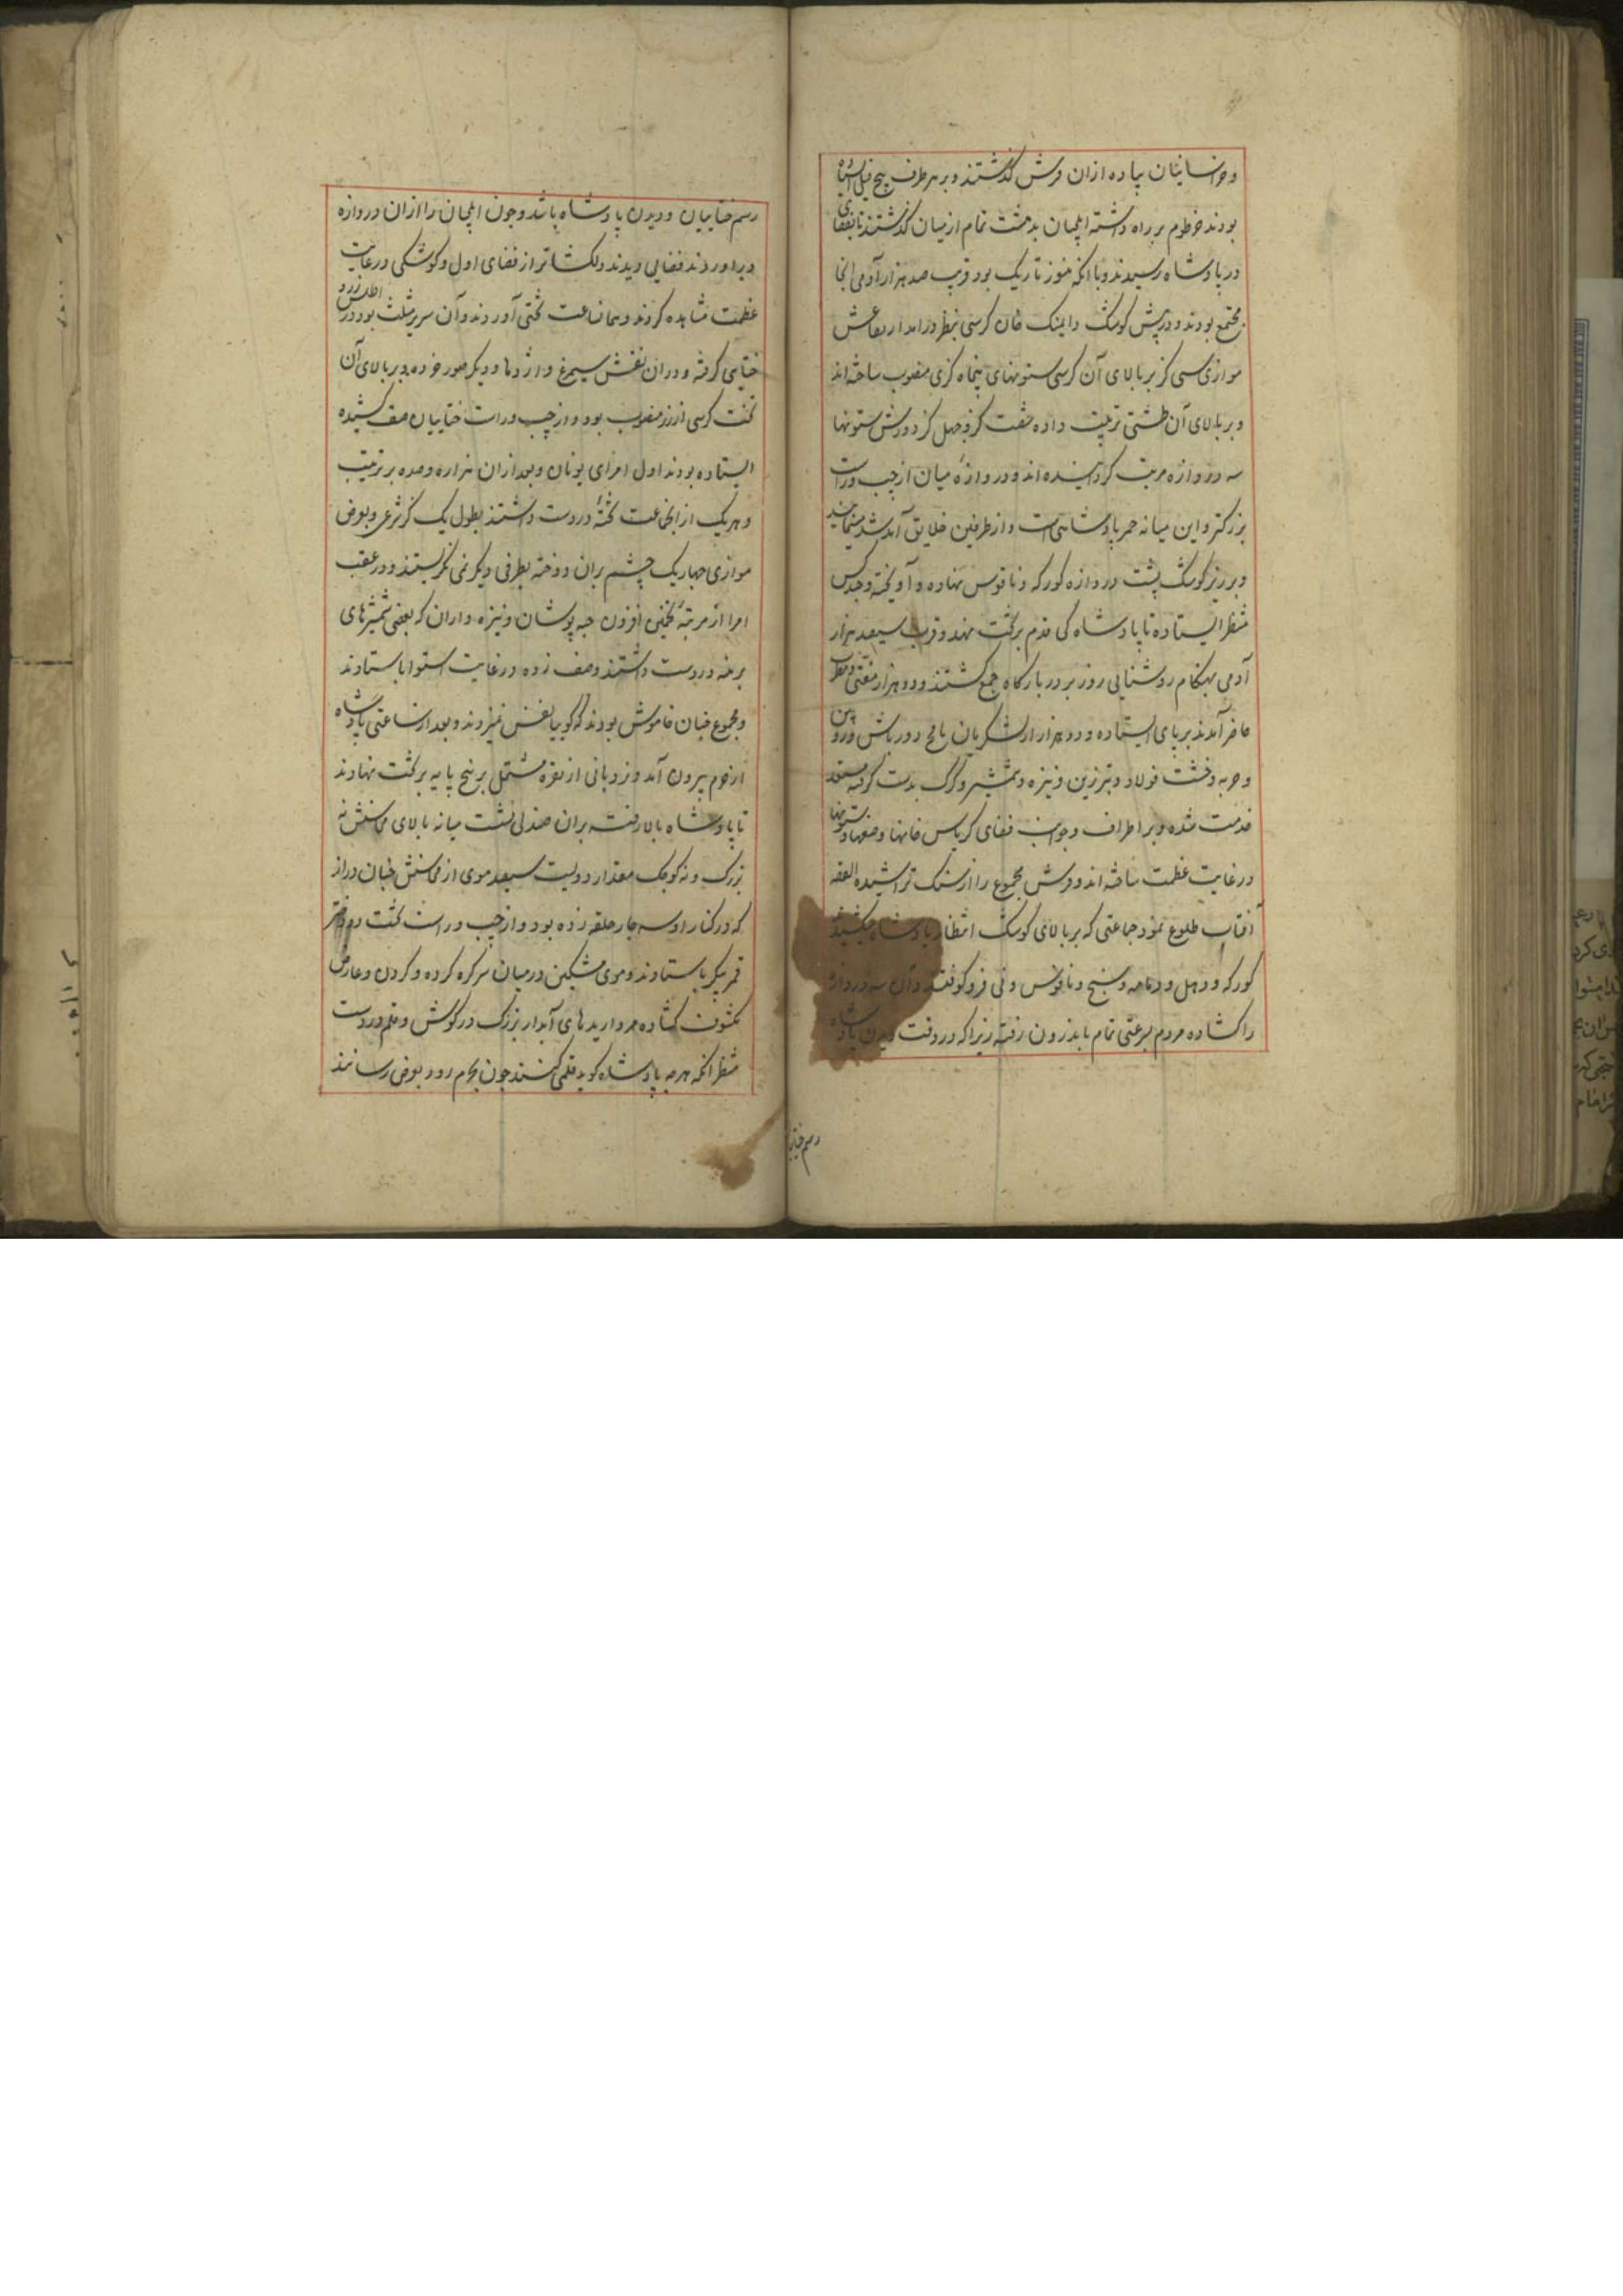 وخراسانیان پیاده ازان فرش کذشتند و بر هر طرف پنج فیل استاده
بودند خرطوم بر راه داشته ایلچیان بدهشت تمام از میان کذشتند تا بفضای
در پادشاه رسیدند و با انکه هنوز تاریک بود قریب صد هزار آدمی انجا
مجتمع بودند و در پیش کوشک داینک قان کرسی بنظر درامد ارتفاعش
موازی سی کز بر بالای آن کرسی ستونهای پنجاه کزی منصوب ساخته اند
و بر بالای آن طشتی ترتیب داده شصت کز و چهل کز و در پیش ستونها
سه دروازه مرتب کردانیده اند و دروازهٔ میان از چپ و راست
بزرکتر و این میانه ممر پادشاهی است و از طرفین خلایق آمد شد مینمایند
و بر زبر کوشک پشت دروازه کورکه و ناقوس نهاده و آویخته و چند کس
منتظر ایستاده تا پادشاه کی قدم بر تخت نهد و قریب سیصد هزار
آدمی بهنکام روشنایی روز بر در بارکاه جمع کشتند و دو هزار مغنی و مطرب
حاضر آمدند بر پای ایستاده و دو هزار از لشکریان با دورباش و زوبین
و حربه و خشت فولاد و تبرزین و نیزه و شمشیر و کرک بدست کرفته مستعد
خدمت شده و بر اطراف و جوانب فضای کریاس خانها و صفها و ستونها
در غایت عظمت ساخته اند و فرش مجموع را از سنک تراشیده القصه
آفتاب طلوع نمود جماعتی که بر بالای کوشک انتظار پادشاه میکشیدند
کورکه و دهل و دمامه و سنج و ناقوس و نی فرو کوفتند و آن سه دروازه
را کشاده مردم بسرعتی تمام باندرون رفته زیرا که در وقت دیدن پادشاه
رسم ختاییان
رسم ختاییان دویدن پادشاه باشد و چون ایلچیان را از ان دروازه
در اوردند فضایی دیدند دلکشاتر از فضای اول و کوشکی در غایت
عظمت مشاهده کردند و همانساعت تختی آوردند و آن سریر مثلث بود در اطلس زرد
ختایی کرفته و دران نقش سیمرغ و اژدها و دیکر صور خرده و بر بالای آن
تخت کرسی از زر منصوب بود و از چپ و راست ختاییان صف کشیده
ایستاده بودند اول امرای تومان و بعد ازان هزاره و صده بر ترتیب
و هر یک از انجماعت تختهٔ در دست داشتند بطول یک کز شرعی و بعرض
موازی چهار یک چشم بران دوخته بطرفی دیکر نمی نکریستند و در عقب
امرا از مرتبهٔ تخمین افزون جبه پوشان و نیزه داران که بعضی شمشیرهای
برهنه در دست داشتند وصف زده در غایت استوا باستادند
و مجموع چنان خاموش بودند که کوییا نفس نمیزدند و بعد از ساعتی پادشاه
از حرم بیرون آمد و نردبانی از نقره مشتمل بر پنج پایه بر تخت نهادند
تا پادشاه بالا رفت بران صندلی نشست میانه بالای محاسنش نه
بزرک و نه کوچک مقدار دویست سیصد موی از محاسنش چنان دراز
که در کنار او سه چار حلقه زده بود و از چپ و راست تخت دو دختر
قمر پیکر باستادند و موی مشکین در میان سر کره کرده و کردن و عارض
مکشوف کشاده مرواریدهای آبدار بزرک در کوش و قلم در دست
منتظر انکه هر چه پادشاه کوید قلمی کنند چون بحرم رود بعرض رسانند